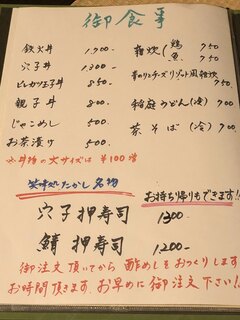 御食事
鉄火丼 1,900-
穴子丼 1,300-
ヒレカツ玉子丼 850-
親子丼 800-
じゃこめし 500-
お茶漬け 500-
※丼物の大サイズは ¥100増
雑炊 鶏 750
魚 750
チーズリゾット風雑炊 750
稲庭うどん(冷) 900
茶そば(冷) 900
笑時処たかし名物
お持ち帰りもできます!!
穴子押寿司 1300-
鯖押寿司 1200-
御注文頂いてから酢めしをおつくりします
お時間頂きます。お早めに御注文下さい!!